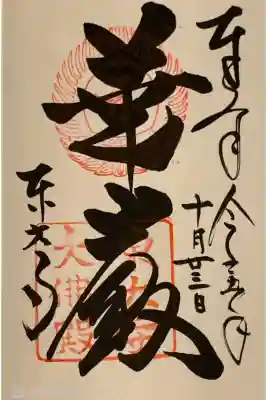 奉拝
令和五年
十月廿三日
華厳
東大寺
大佛殿